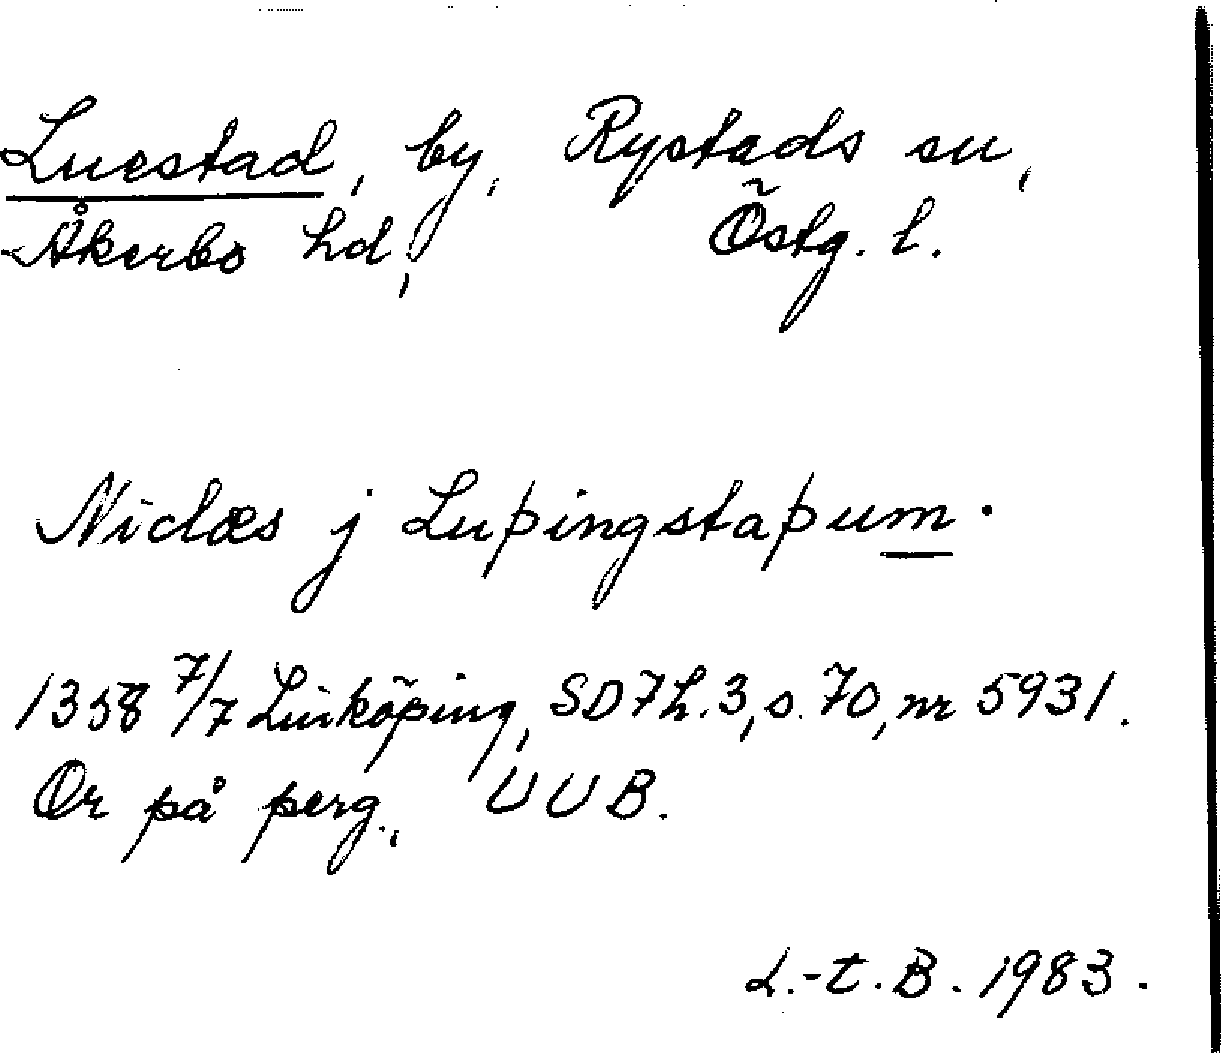 Luestad, by, Rystads sn,
Åkerbo hd, Östg. l.
Niclæs j Luþingstaþum.
1358 7/7 Linköping, SD7h.3, s.70, nr 5931.
Or på perg., UUB.
L.-t.B. 1983.